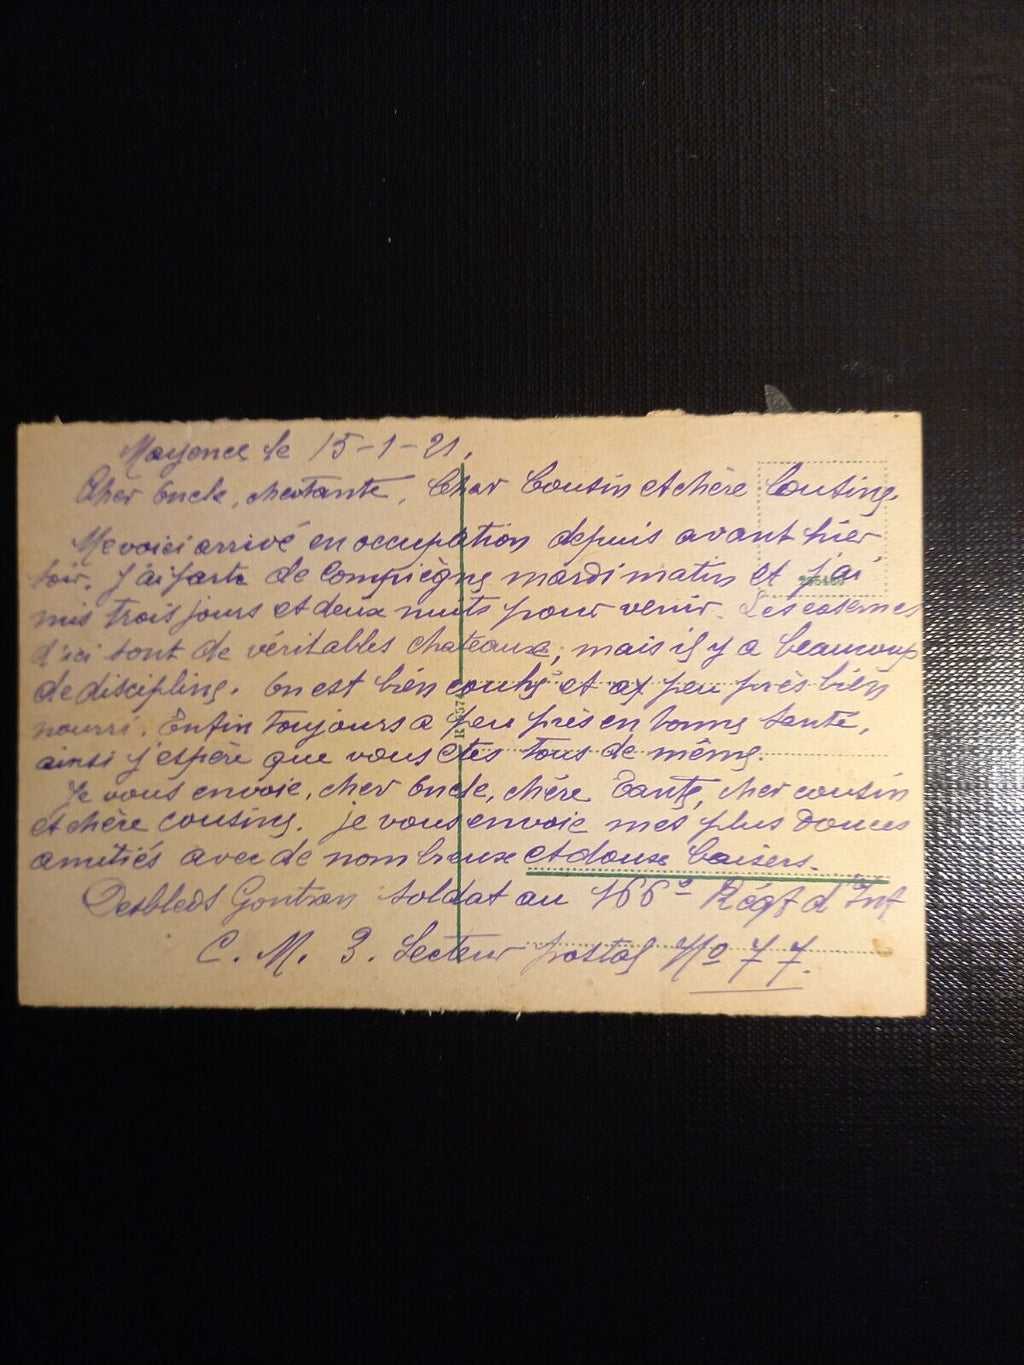 Mayence le 15-1-21,
Cher Oncle, chere tante, Cher Cousin et chère Cousine,
Me voici arrivé en occupation depuis avant hier
soir. J'ai parti de Compiègne mardi matin et j'ai
mis trois jours et deux nuits pour venir. Les casernes
d'ici sont de véritables chateaux, mais il y a beaucoup
de discipline. On est bien couché et a peu près bien
nourri. Enfin toujours a peu près en bonne santé,
ainsi j'espère que vous etes tous de même.
Je vous envoie, cher Oncle, chère Tante, cher cousin
et chère cousine, je vous envoie mes plus douces
amitiés avec de nombreux et doux baisers.
Desbleds Gontran soldat au 166e Régt d'Inf
C. M. 3. Secteur postal No 77.